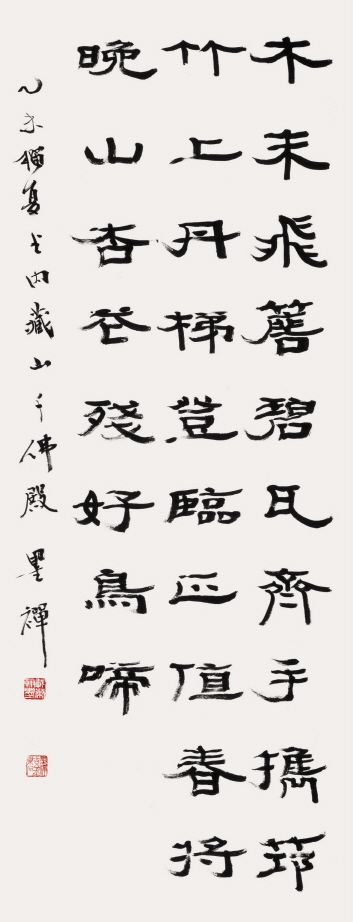 木末飛簷碧瓦齊手攜筇
竹上丹梯登臨正值春將
晚山杏花殘好鳥啼
乙未夏书内藏山千佛殿墨禪